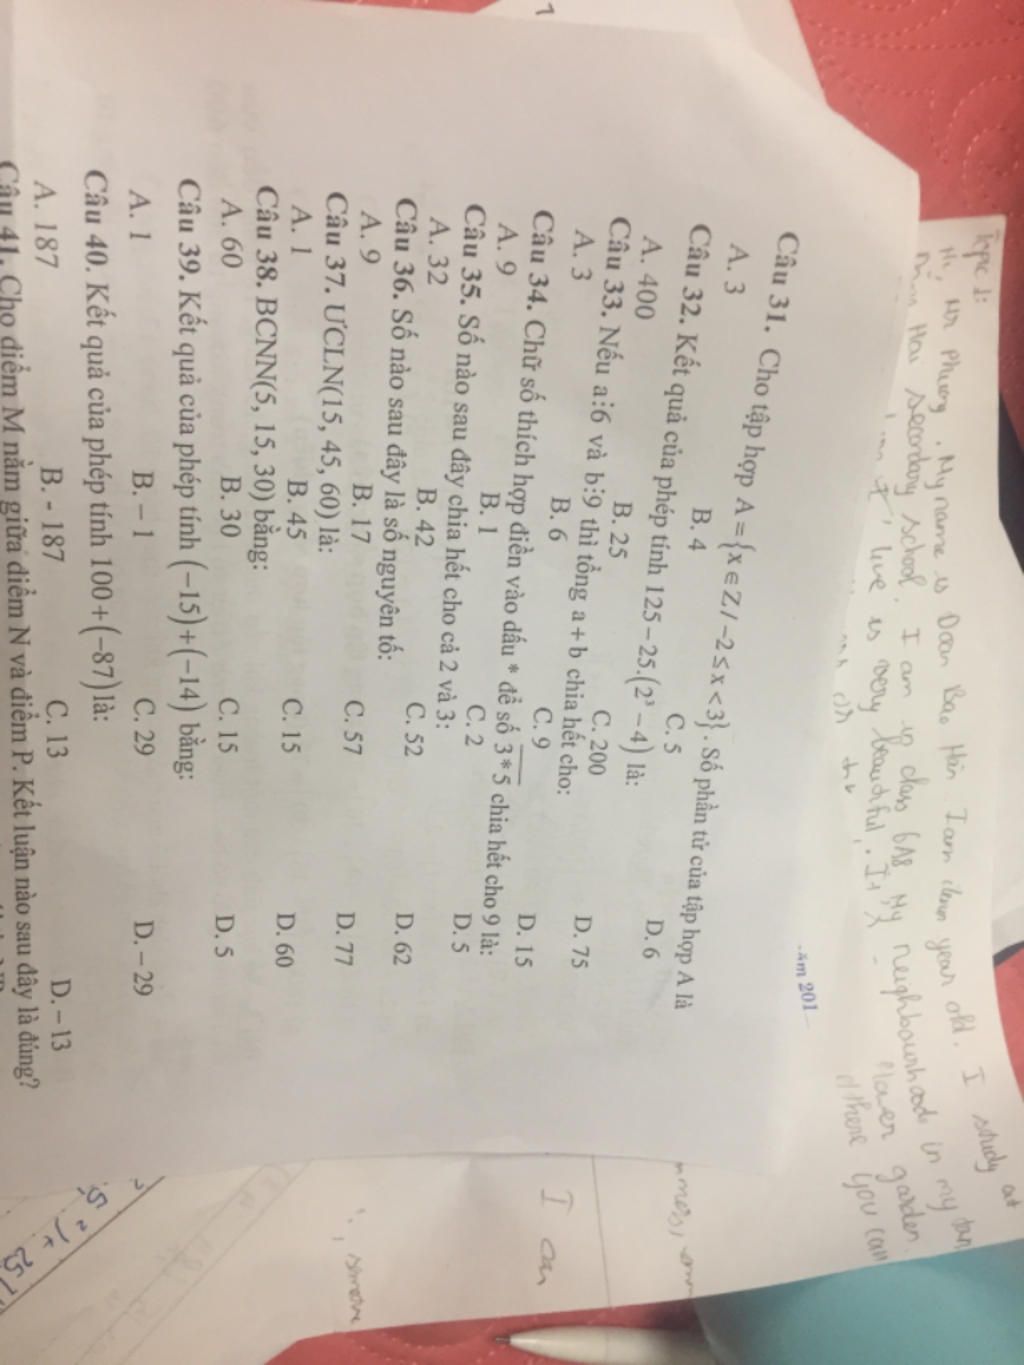 Topic 1:
Hi, Mr Phương. My name is Doan Bao Hân. I am year old. I study at
Hai secondary school. I am in class 6A8. My neighbourhood in my
live is very beautiful. It flower garden.
there you can
ăm 201
Câu 31. Cho tập hợp A = {x ∈ Z / −2 ≤ x < 3}. Số phần tử của tập hợp A là
A. 3 B. 4 C. 5 D. 6
Câu 32. Kết quả của phép tính 125 − 25.(2³ − 4) là:
A. 400 B. 25 C. 200 D. 75
Câu 33. Nếu a⋮6 và b⋮9 thì tổng a + b chia hết cho:
A. 3 B. 6 C. 9 D. 15
Câu 34. Chữ số thích hợp điền vào dấu * để số 3*5 chia hết cho 9 là:
A. 9 B. 1 C. 2 D. 5
Câu 35. Số nào sau đây chia hết cho cả 2 và 3:
A. 32 B. 42 C. 52 D. 62
Câu 36. Số nào sau đây là số nguyên tố:
A. 9 B. 17 C. 57 D. 77
Câu 37. ƯCLN(15, 45, 60) là:
A. 1 B. 45 C. 15 D. 60
Câu 38. BCNN(5, 15, 30) bằng:
A. 60 B. 30 C. 15 D. 5
Câu 39. Kết quả của phép tính (−15)+(−14) bằng:
A. 1 B. – 1 C. 29 D. – 29
Câu 40. Kết quả của phép tính 100+(−87) là:
A. 187 B. - 187 C. 13 D. – 13
Câu 41. Cho điểm M nằm giữa điểm N và điểm P. Kết luận nào sau đây là đúng?
I can